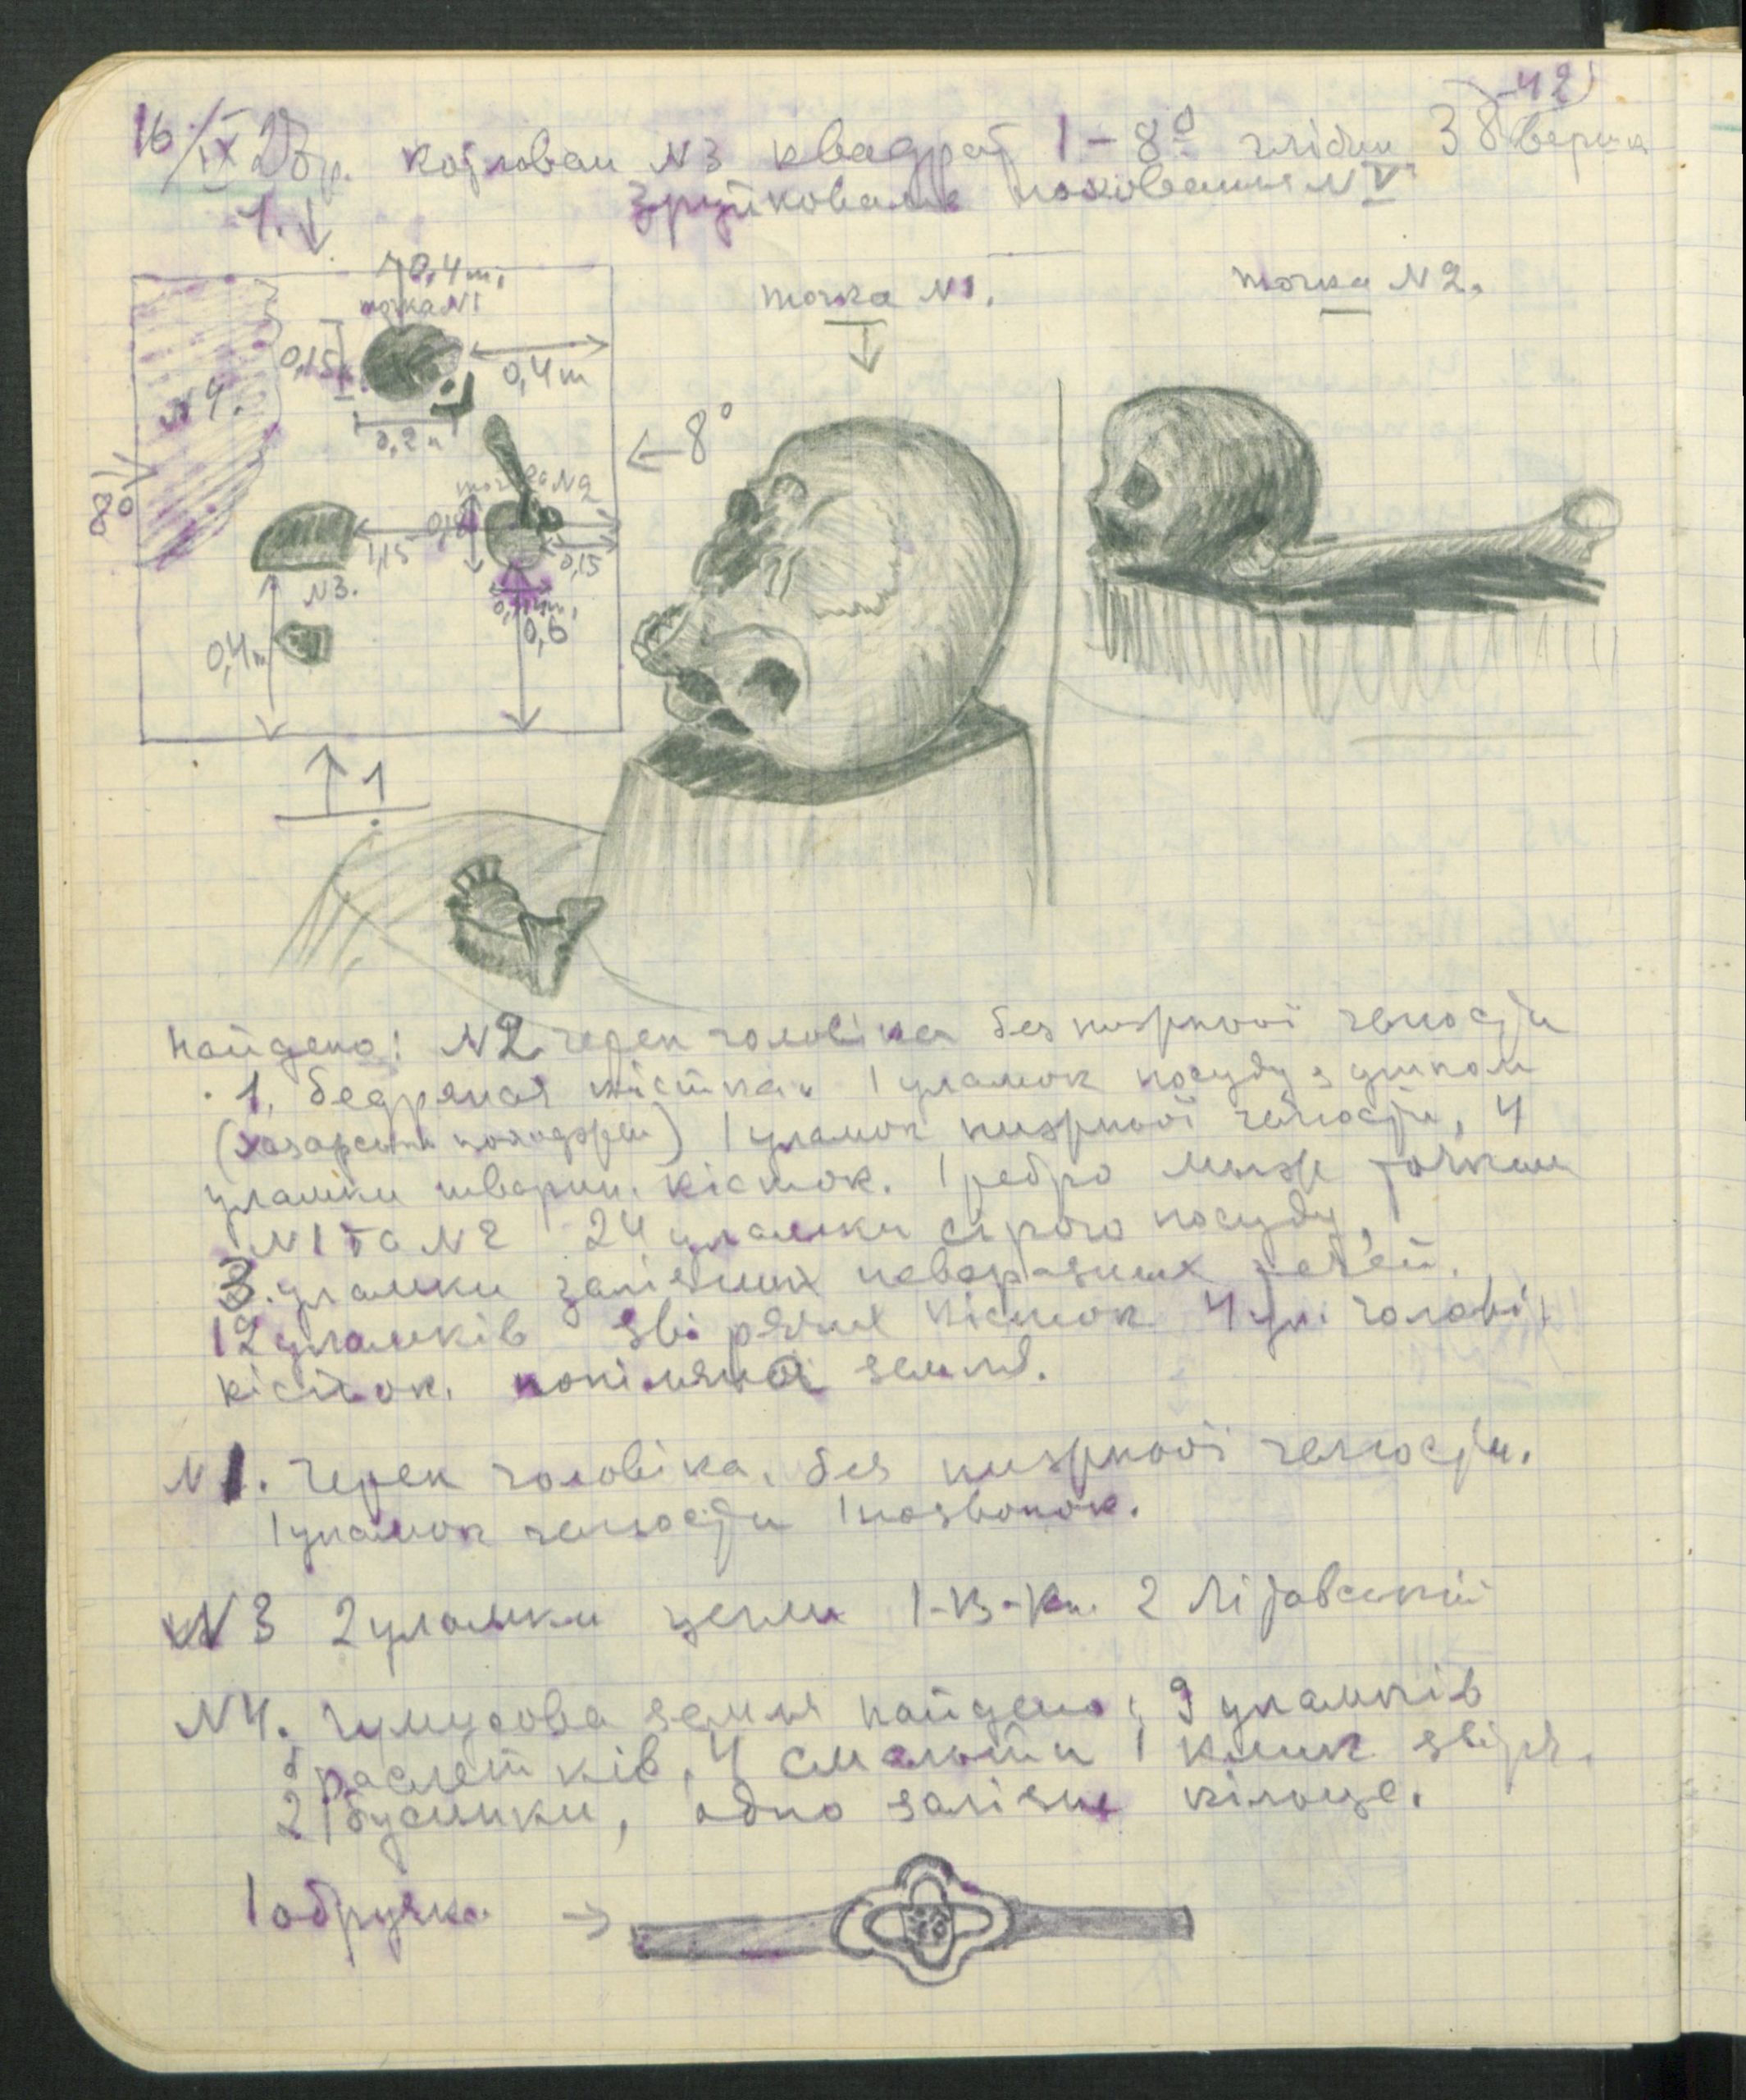 42
16/IX 28р. Котлован N3 квадрат 1-8° глибин 38 верша
Зруйковане поховання N V
1.
0,4 m.
точка N1
точка N1.
точка N2.
0,15
0,4 m
N4.
0,2 м
8°
8°
точка N2
1,15
0,15
N3.
0,6
0,4 m
1
Найдено: N2 череп чоловіка без низрньої челюсти
1. бедряная кістка. 1 уламок посуду з ушком
1 уламок низрньої челюсти, 4
уламки творин. кісток. 1 ребро между точками
N1 та N2 24 уламки сірого посуду,
3. уламки залізних невиразних речей.
12 уламків звірячих кісток 4 ул. чолові.
кісток. попіляноа земля.
N1. Череп чоловіка, без низрньої челюсти.
1 уламок челюсти 1 позвонок.
N3 2 уламки цегли 1-К-Кн. 2 Літовський
N4. Гумусова земля найдено: 9 уламків
браслетків, 4 смальти 1 клик звіря.
2 бусинки, одно залізне кільце.
1 обручка